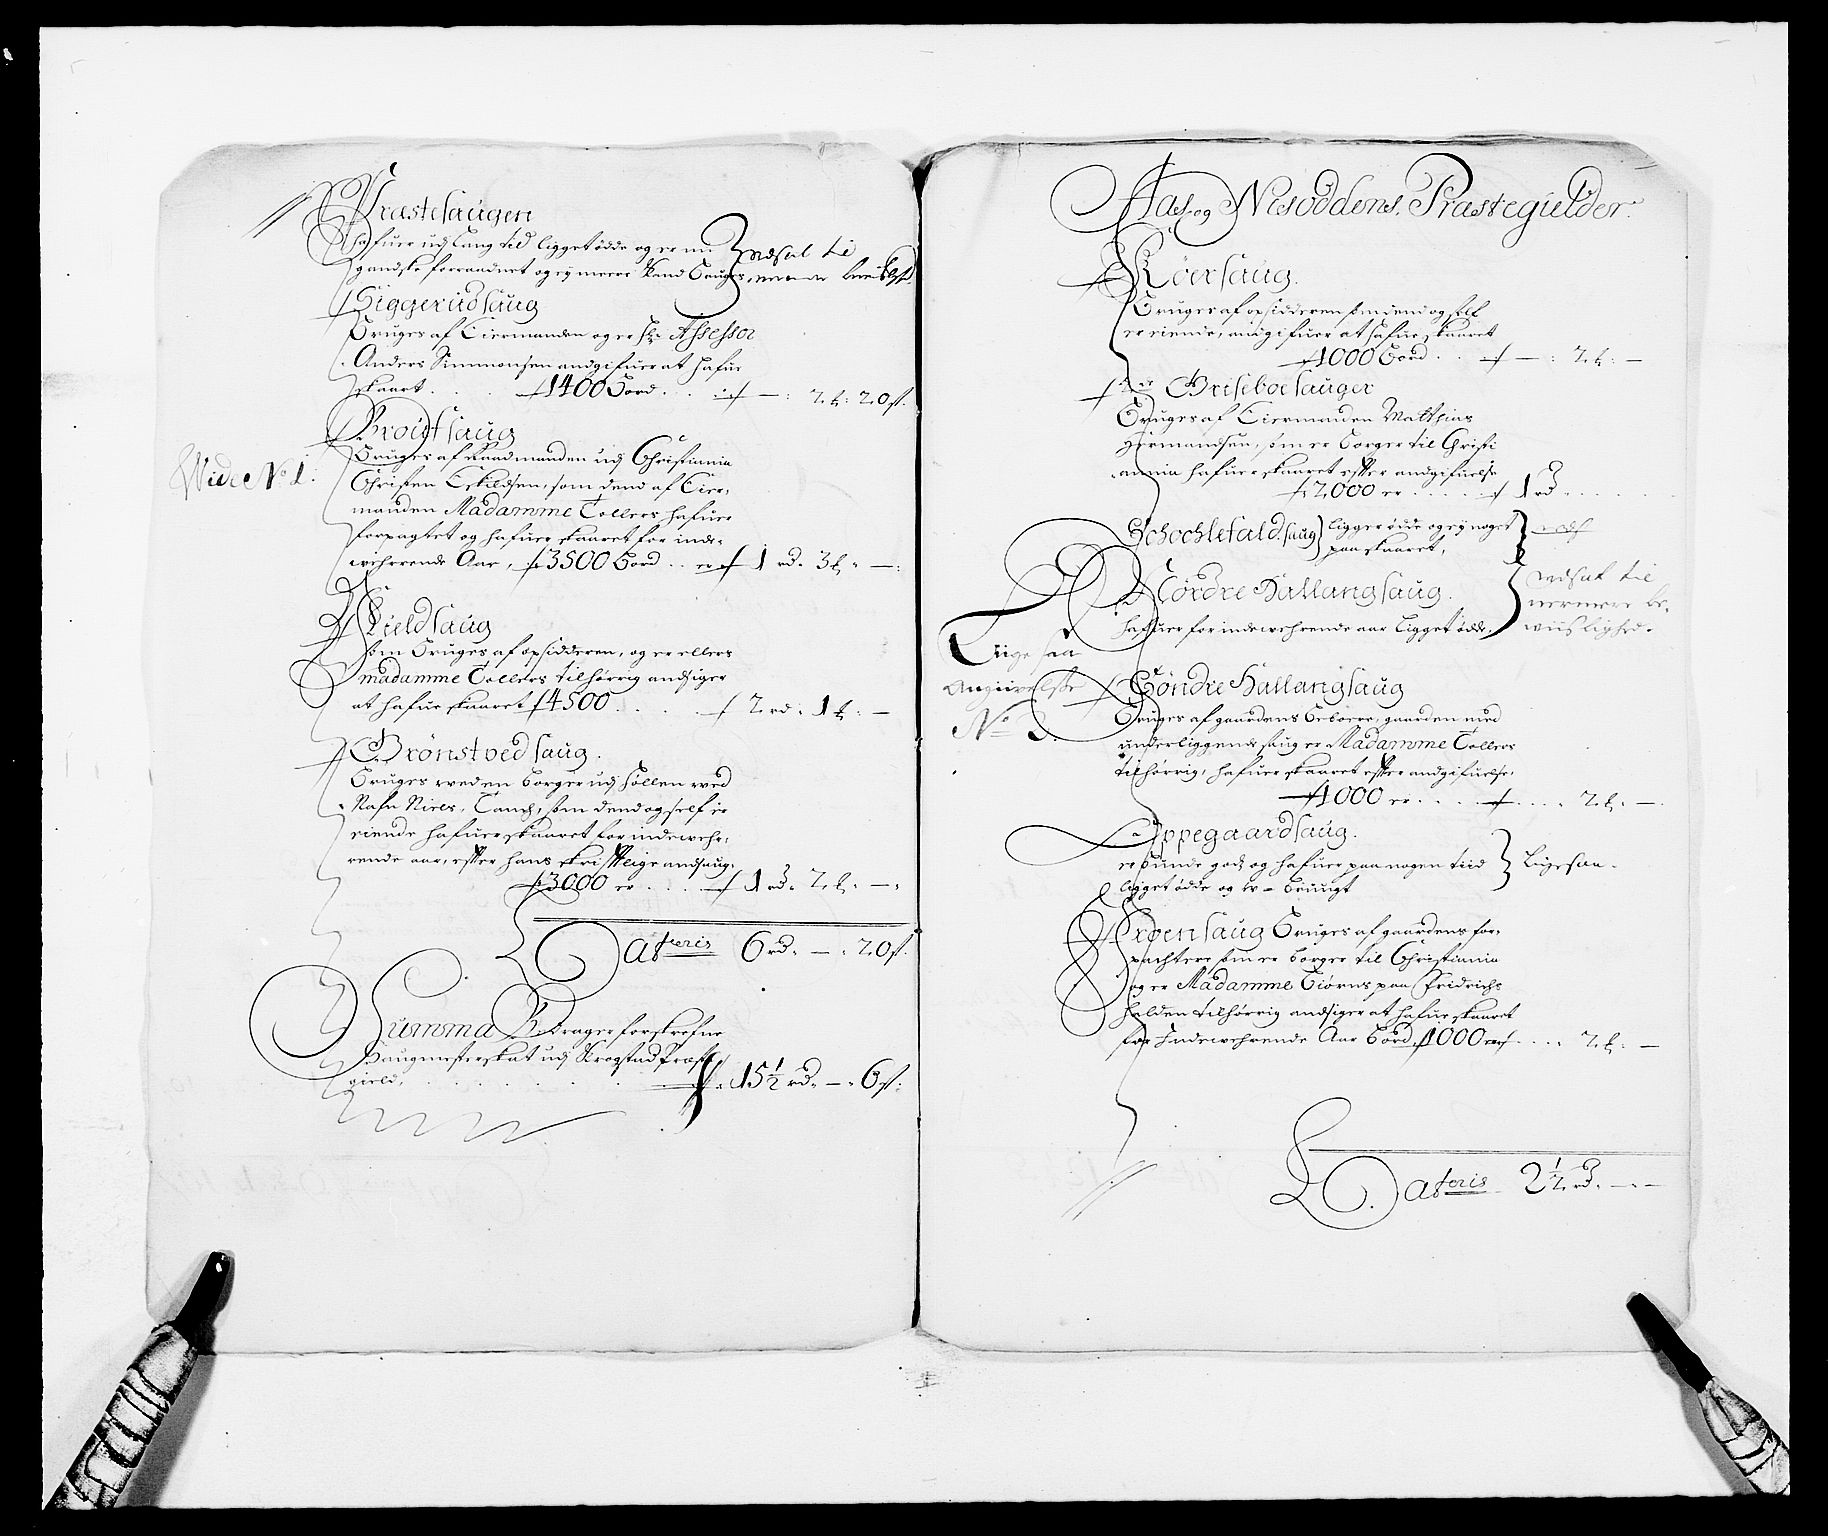 Præstesaugen
hafuer udj lang tid ligget ødde og er nu
gandske forraadnet og ej meere kand bruges,
udsat til
nermere beviislighed
Siggerudsaug
bruges af Eiermanden og er Hr. Assessor
Anders Simmonsen andgifuer at hafue
skaaret . . . 1400 bord . . . er — : 2 ℔ : 20 ß.
Wide No 1.
Broutsaug
bruges af Raadmanden udj Christiania
Christen Eskildsen, som dend af Eier-
manden Madamme Tollers hafuer
forpagtet og hafuer skaaret for inde-
wehrende Aar, 3500 bord . . er 1 rd. 3 ℔. — :
Fieldsaug
som bruges af opsidderen, og er ellers
Madamme Tollers tilhørrig andsiger
at hafue skaaret 4500 . . . . 2 rd. 1 ℔. —
Grønstvedsaug.
bruges wed en borger udj Hollen wed
Nafn Niels Tanck, som dend og self er
eiende hafuer skaaret for indewehr-
rende aar, efter hans skrifftlige andsaug-
3000 er . . . . 1 rd. 2 ℔. — .
Lateris 6 rd. — . 20 ß.
Summa Bedrager forskrefne
Saugmesterskat udj Krogstad Præste
gield, . . . . . . 15½ rd. — . 6 ß.
Aas og Nesoddens Præstegielder.
Kiøersaug.
bruges af opsidderen som dend og self
er eiende, andgifuer at hafue skaaret
1000 bord . . . — : 2 ℔. —
2er Griseboesauger
bruges af Eiermanden Matthias
Hermandsen, som er borger til Christi
annia hafuer skaaret effter andgifuelse
2000 er . . . . . 1 rd . . . . .
Schochlefaldsaug ligger ødde og ej noget
paa skaaret,
udsat
Nordre Hallangsaug.
hafuer for indewehrende aar Ligget ødde.
udsat til
nermere be-
wiislighed.
Ligesaa
Angiivelsse
No 3.
Søndre Hallangsaug
bruges af gaardens beboere, gaarden med
underliggende saug er Madamme Tollers
tilhørrig, hafuer skaaret effter andgifuelse,
1000 er . . . . . . . . . 2 ℔. — .
Oppegaardsaug.
er bunde godz og hafuer paa nogen tiid
ligget ødde og er u-bruugt
Ligesaa.
Froensaug bruges af gaardens for-
pachtere som er borger til Christiania
og er Madamme Biørns paa Fridrichs
halden tilhørrig andsiger at hafue skaaret
for Indewehrende Aar bord 1000 er . . . . 2 ℔. —
Lateris 2½ rd. — . —